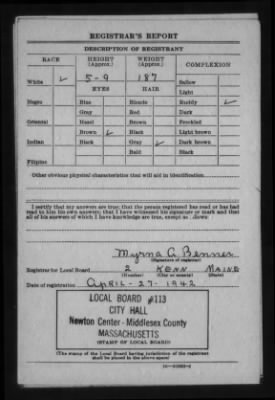 REGISTRAR'S REPORT
DESCRIPTION OF REGISTRANT
RACE HEIGHT (Approx.) WEIGHT (Approx.) COMPLEXION
White ✓ 5-9 187 Sallow
EYES HAIR Light
Negro Blue Blonde Ruddy ✓
Gray Red Dark
Oriental Hazel Brown Freckled
Brown ✓ Black Light brown
Indian Black Gray ✓ Dark brown
Bald Black
Filipino
Other obvious physical characteristics that will aid in identification
I certify that my answers are true; that the person registered has read or has had
read to him his own answers; that I have witnessed his signature or mark and that
all of his answers of which I have knowledge are true, except as
Myrna C. Benner
(Signature of registrar)
Registrar for Local Board 2 KENN MAINE
(Number) (City or county) (State)
Date of registration APRIL-27-1942
LOCAL BOARD #113
CITY HALL
Newton Center - Middlesex County
MASSACHUSETTS
(STAMP OF LOCAL BOARD)
(The stamp of the Local Board having jurisdiction of the registrant
shall be placed in the above space)